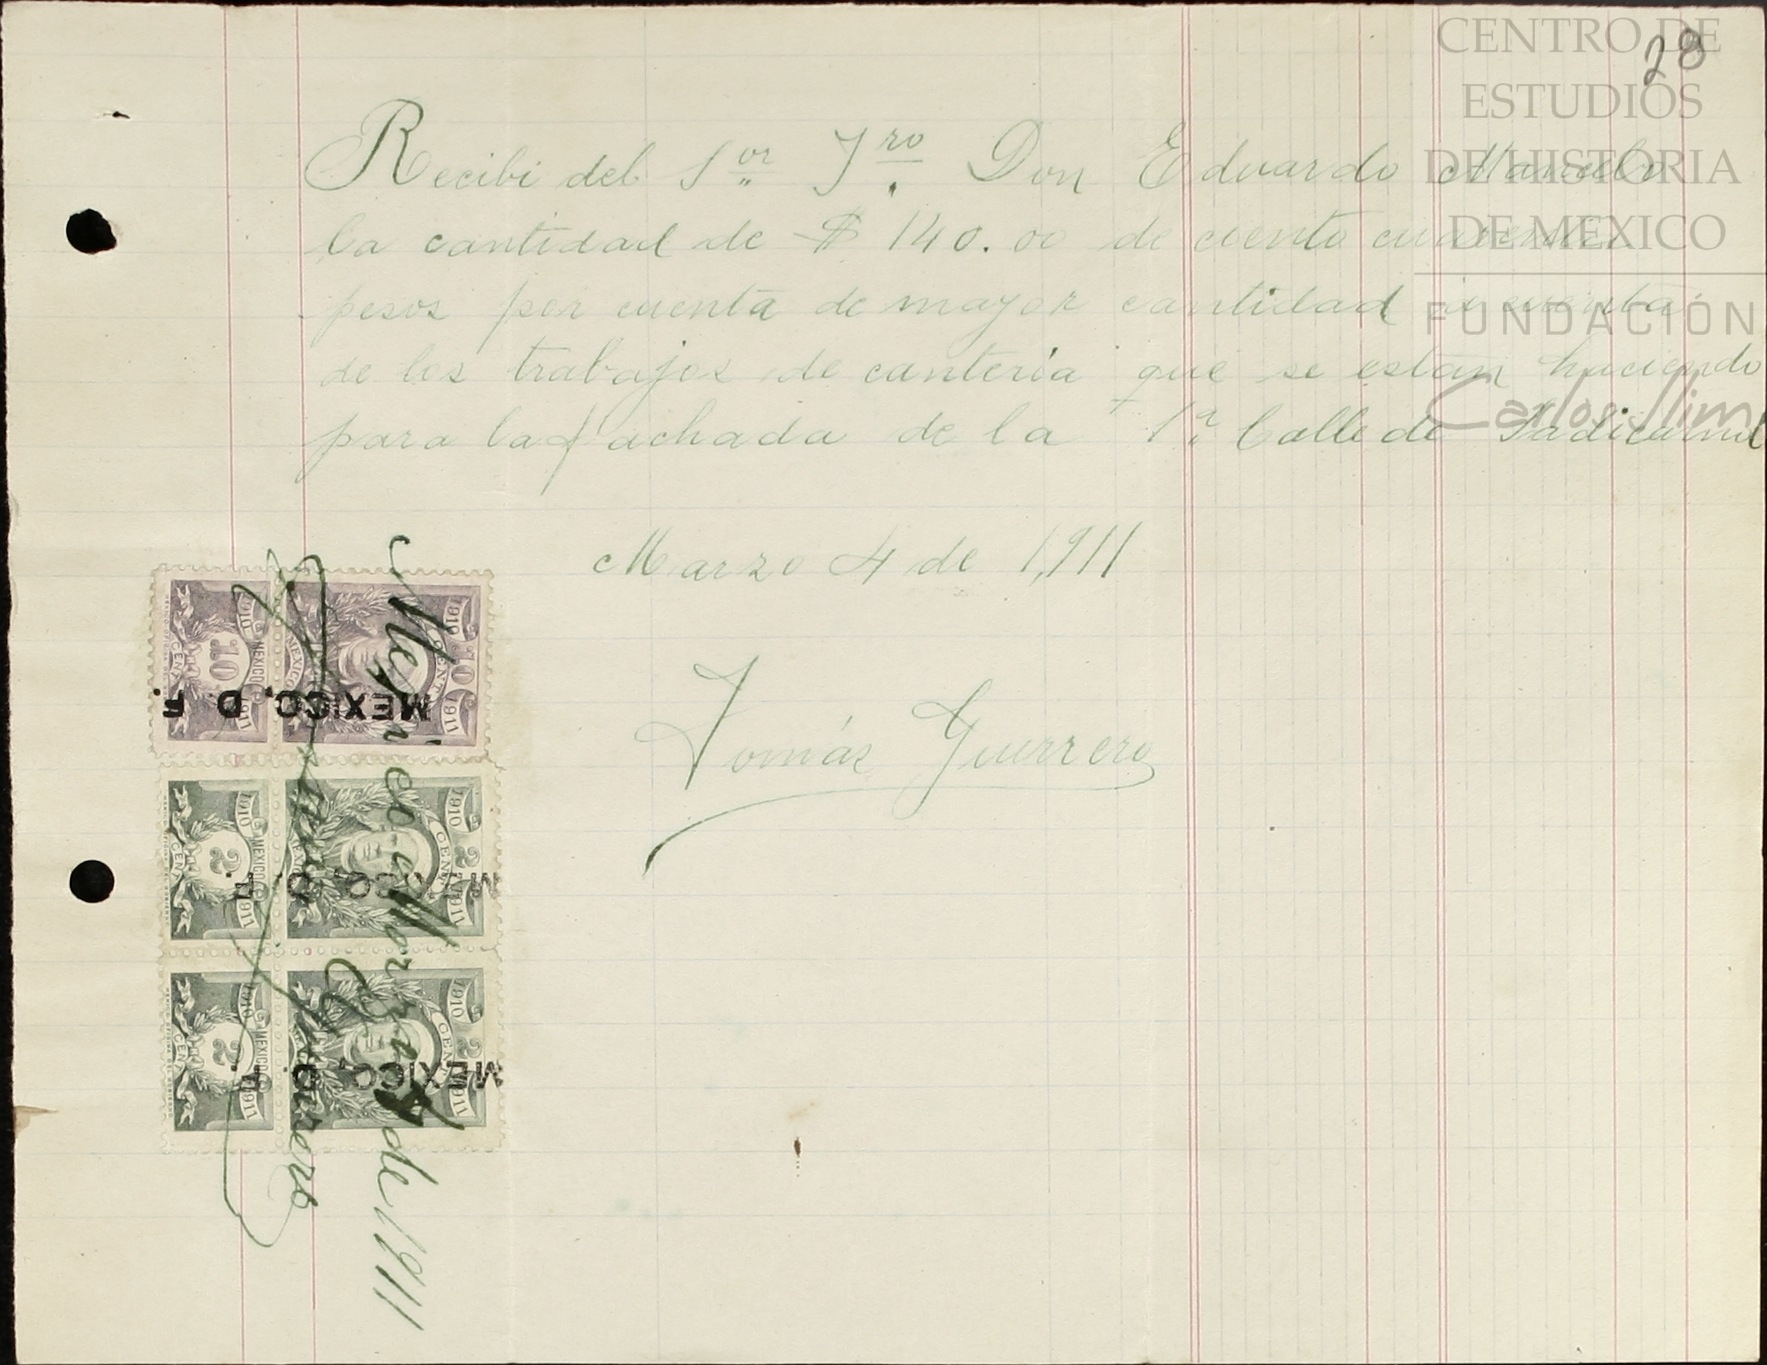 28
CENTRO DE
ESTUDIOS
DE HISTORIA
DE MEXICO
FUNDACIÓN
Carlos Slim
Recibi del Sor Yro Don Eduardo
la cantidad de $ 140.00 de ciento cuarenta
pesos por cuenta de mayor cantidad á cuenta
de los trabajos de cantería que se están haciendo
para la fachada de la 1a Calle de
Marzo 4 de 1,911
Tomás Guerrero
Mejico Marzo 4 de 1911
Guerrero
1910 MEXICO 1911
10 CENT
1910 MEXICO 1911
10 CENT
MEXICO, D. F.
1910 MEXICO 1911
2 CENT
1910 MEXICO 1911
2 CENT
1910 MEXICO 1911
2 CENT
1910 MEXICO 1911
2 CENT
MEXICO, D. F.